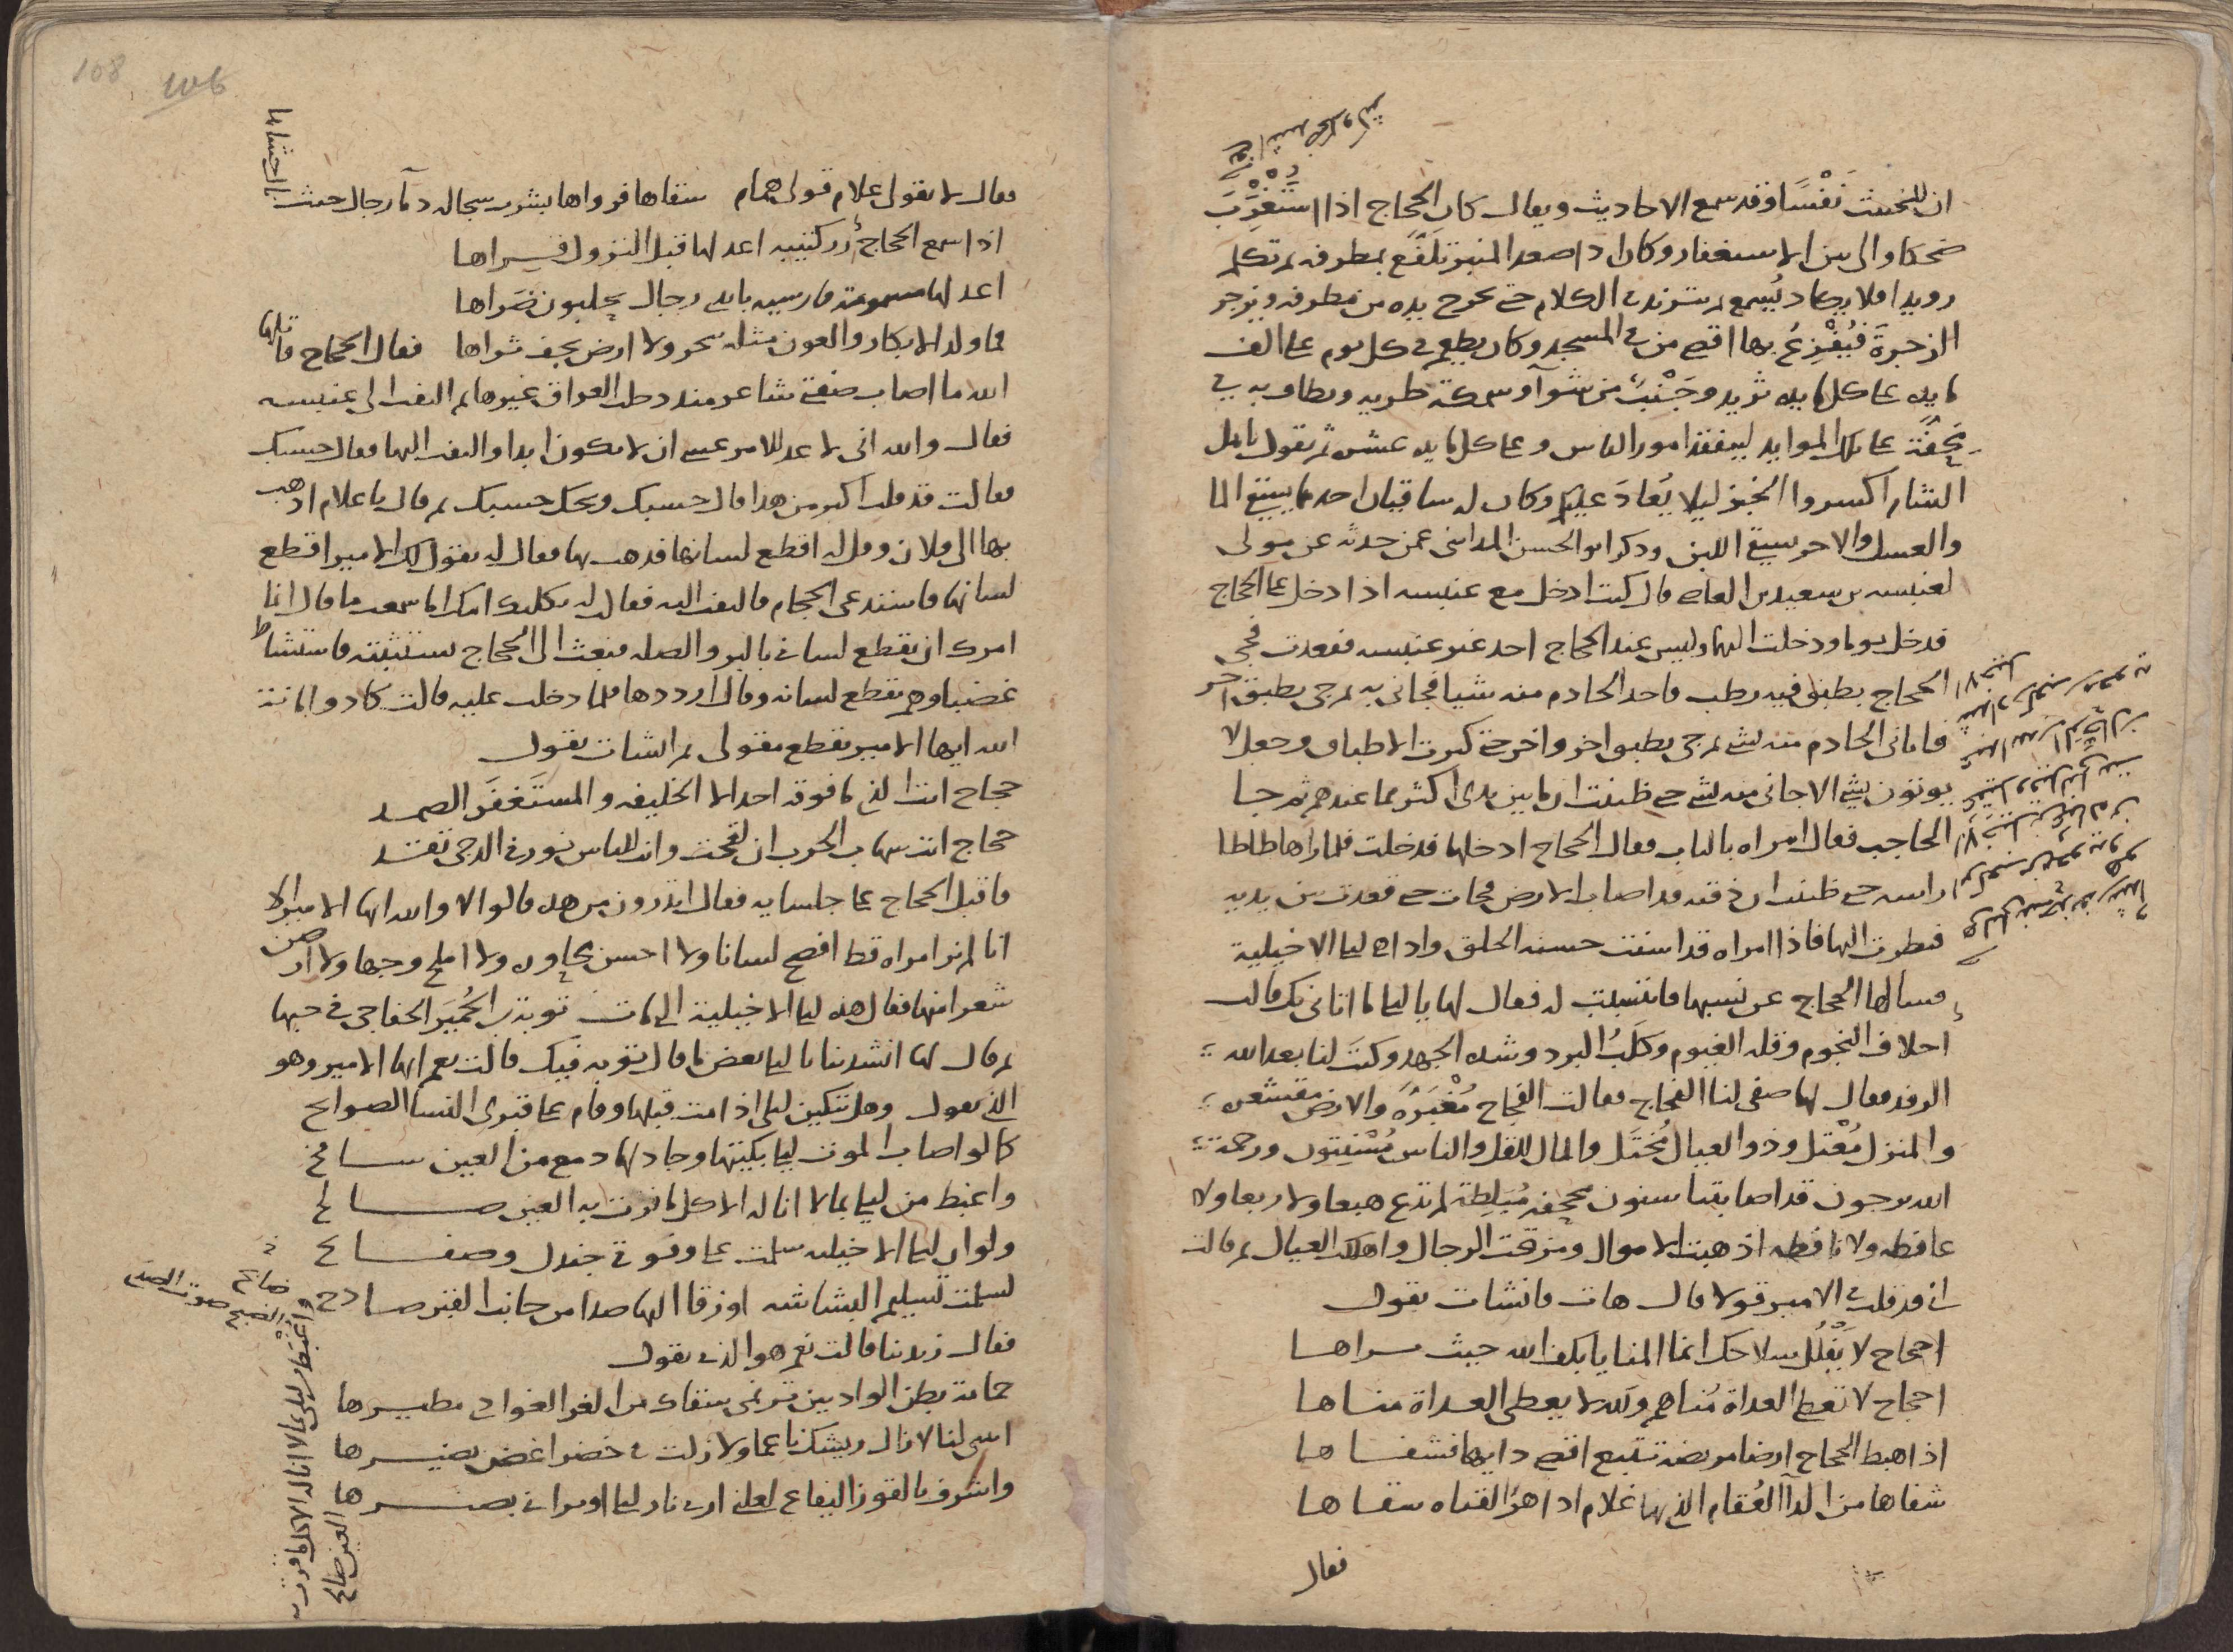 ان للخبيث نَفْسًا وقد سمع الاحاديث ويقال كان الحجاج اذا اسْتُغْرِبَ
ضحكا والى بين الاستغفار وكان اذا صعد المنبر تَلَفَّع بمطرفه ثم تكلم
رويدا فلا يكاد يُسمع ثم يتزيد في الكلام حتى يخرج يده من مطرفه ويزجر
الزجرةَ فيُفْزِعُ بها اقصى من في المسجد وكان يطعم في كل يوم على الف
مايده على كل مايده ثريد وجَنْبٌ من شوآ وسمكة طريه ويطاف به في
محفّة على تلك الموايد ليتفقد امور الناس وعلى كل مايده عشره ثم يقول يا اهل
الشام اكسروا الخبز ليلا يُعادَ عليكم وكان له ساقيان احدهما يسقى الما
والعسل والاخر يسقى اللبن وذكر ابو الحسن المداينى عمن حدثه عن مولى
لعنبسه بن سعيد بن العاص قال كنت ادخل مع عنبسه اذا دخل على الحجاج
فدخل يوما ودخلت اليهما وليس عند الحجاج احد غير عنبسه فقعدت فجى
الحجاج بطبق فيه رطب فاخذ الخادم منه شيا فجانى به ثم جى بطبق اخر
فاتانى الخادم منه بشى ثم جى بطبق اخر واخر حتى كثرت الاطباق وجعل لا
يوتون بشى الا جانى منه بشى حتى ظننت ان ما بين يدى اكثر مما عندهم ثم جا
الحاجب فقال امراه بالباب فقال الحجاج ادخلها فدخلت فلما راها طاطا
راسه حتى ظننت ان ذقنه قد اصاب الارض فجات حتى قعدت بين يديه
فنظرت اليها فاذا امراه قد اسنت حسنه الخلق واذا هى ليلى الاخيلية
فسالها الحجاج عن نسبها فانتسبت له فقال لها يا ليلى ما اتانى بك قالت
اخلاف النجوم وقله الغيوم وكَلَبُ البرد وشده الجهد وكنتَ لنا بعد الله
الرفد فقال لها صفى لنا الفجاج فقالت الفجاج مُغْبَرَّة والارض مقشعره
والمنزل مُعْتل وذو العيال مُختَل والمال للقل والناس مُسْنِتون ورحمة
الله يرجون قد اصابتنا سنون مجحفه مُبَلِطة لم تدع هبعا ولا ربعا ولا
عافطه ولا نافطه اذهبت الاموال ومزقت الرجال واهلكت العيال ثم قالت
انى قد قلت فى الامير قولا قال هات فانشات تقول
احجاج لا يُفْلَل سلاحك انما المنايا بكف الله حيث يراها
احجاج لا تعطى العداة مُناهم ولله لا يعطى العداة مناها
اذا هبط الحجاج ارضا مريضه تتبع اقصى دايها فشفاها
شفاها من الدآ العُقام الذى بها غلام اذا هز القناه سقاها
فقال
108
فقال لا تقولى غلام قولى همام سقاها فرواها بشرب سجاله دمآ رجال حيث
اذا سمع الحجاج رز كتيبه اعد لها قبل النزول قراها
اعد لها مسمومة فارسيه بايدى رجال يحلبون صَراها
فما ولد الابكار والعون مثله ببحر ولا ارض يجف ثراها فقال الحجاج قاتلها
الله ما اصاب صفتى شاعر منذ دخلت العراق غيرها ثم التفت الى عنبسه
فقال والله انى لاعد للامر عسى ان لا يكون ابدا والتفت اليها فقال حسبك
فقالت قد قلت اكثر من هذا قال حسبك ويحك حسبك ثم قال يا غلام اذهب
بها الى فلان وقل له اقطع لسانها فذهب بها فقال له يقول لك الامير اقطع
لسانها فاستدعى الحجام فالتفت اليه فقال له ثكلتك امك اما سمعت ما قال انما
امرك ان تقطع لسانى بالبر والصله فبعث الى الحجاج يستثبته فاستشاط
غضبا وهم بقطع لسانه وقال ارددها فلما دخلت عليه قالت كاد وامانة
الله ايها الامير يقطع مقولى ثم انشات تقول
حجاج انت الذى ما فوقه احد الا الخليفه والمستَغفَر الصمد
حجاج انت شهاب الحرب ان لقحت وانت للناس نور فى الدجى تقد
فاقبل الحجاج على جلسايه فقال اتدرون من هذه قالوا لا والله ايها الامير الا
انا لم نر امراه قط افصح لسانا ولا احسن محاوره ولا املح وجها ولا ارصن
شعرا منها فقال هذه ليلى الاخيلية التى مات توبة بن الحُمَيَر الخفاجى فى حبها
ثم قال لها انشدينا يا ليلى بعض ما قال توبه فيك قالت نعم ايها الامير وهو
الذى يقول وهل تبكين ليلى اذا مت قبلها وقام على قبرى النسا الصوايح
كما لو اصاب الموت ليلى بكيتها وجاد لها دمع من العين سافح
واغبط من ليلى بما لا اناله الا كل ما قرت به العين صالح
ولو ان ليلى الاخيليه سلمت على وفوقى جندل وصفايح
لسلمت تسليم البشاشه او زقا اليها صدا من جانب القبر صادح
فقال زيدينا قالت نعم هو الذى يقول
حمامة بطن الواديين ترنمى سقاك من الغر الغوادى مطيرها
ابينى لنا لا زال ريشك ناعما ولا زلت فى خضرا غض نضيرها
واشرف بالقوز اليفاع لعلنى ارى نار ليلى او يرانى بصيرها
واغبط من ليلى بما لا اناله الا كل ما قرت به
العين صالح